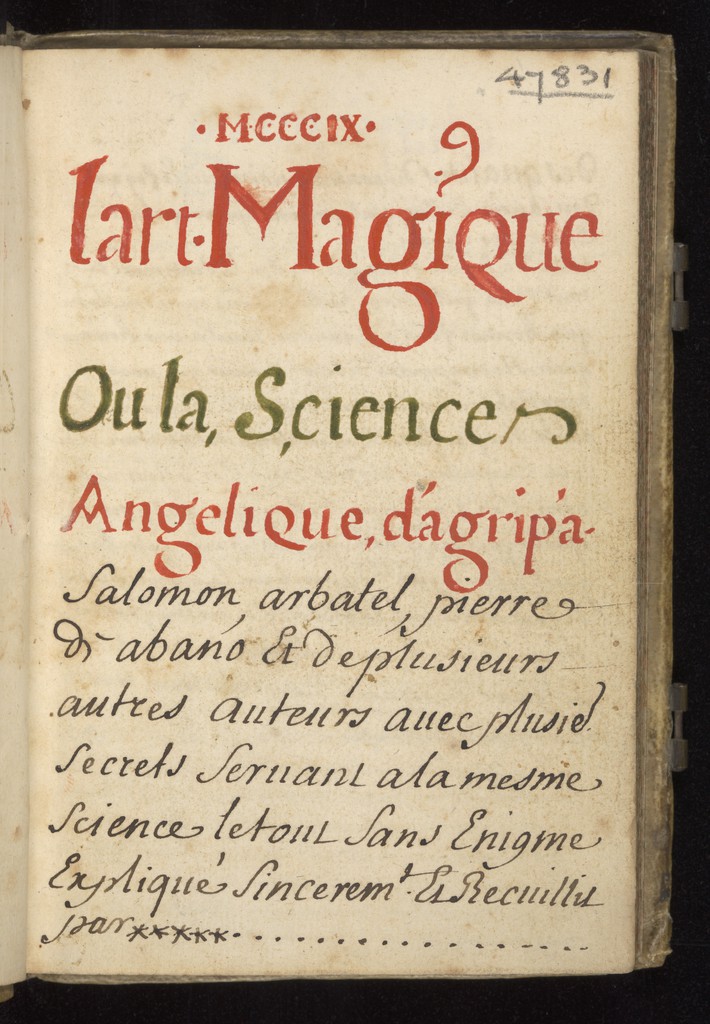 47831
·MCCCCIX·
lart·Magique
Ou la, Science
Angelique, d'agripa·
Salomon, arbatel, pierre
d'abano Et De plusieurs
autres auteurs auec plusie.rs
secrets seruant a la mesme
science le tout sans Enigme
Expliqué sincerem.t Et Recuillit
par xxxxx..................